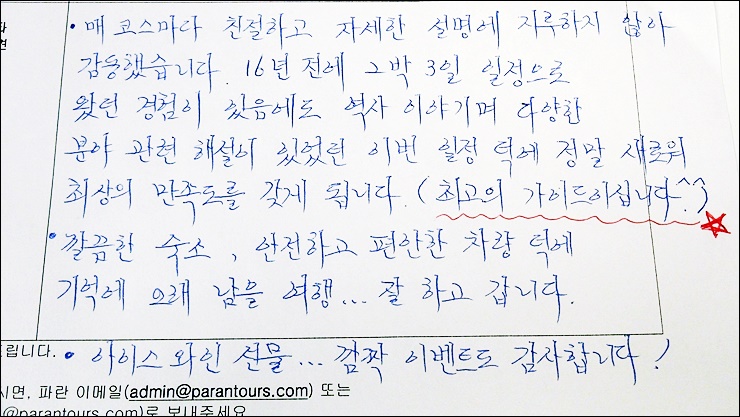 • 매 코스마다 친절하고 자세한 설명에 지루하지 않아
감동했습니다. 16년 전에 2박 3일 일정으로
왔던 경험이 있음에도 역사 이야기며 다양한
분야 관련 해설이 있었던 이번 일정 덕에 정말 새로워
최상의 만족도를 갖게 됩니다. (최고의 가이드이십니다^^)
• 깔끔한 숙소, 안전하고 편안한 차량 덕에
기억에 오래 남을 여행... 잘 하고 갑니다.
드립니다. • 아이스 와인 선물... 깜짝 이벤트도 감사합니다!
시면, 파란 이메일(admin@parantours.com) 또는
@parantours.com)로 보내주세요